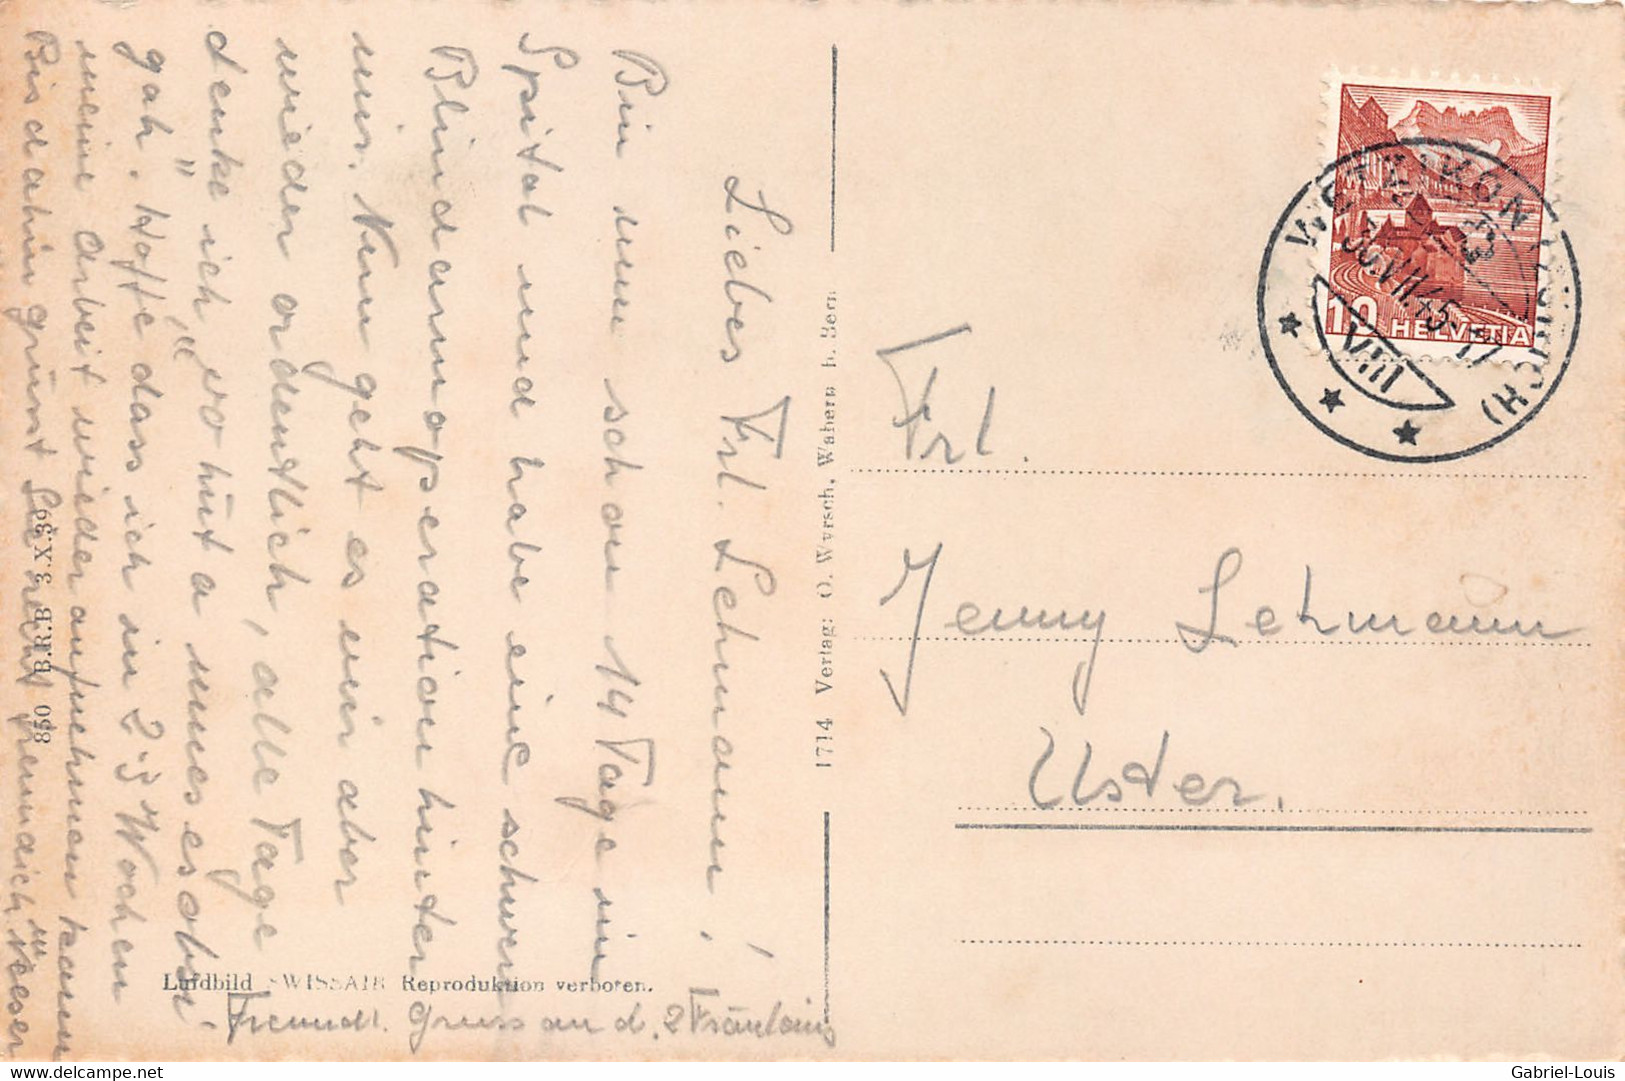 Liebes Frl. Lehmann!
Bin nun schon 14 Tage im
Spital und habe eine schwere
Blinddarmoperation hinter
mir. Nun geht es mir aber
wieder ordentlich, alle Tage
denke ich, "vo hüt a nues es obsi
gah." Hoffe dass ich in 2-3 Wochen
meine Arbeit wieder aufnehmen kann
Bis dahin grüsst Sie recht
Freundl. Gruss an d. 2 Fräuleins
Luftbild SWISSAIR Reproduktion verboten.
880 B.R.B. 3.X.39
1714 Verlag: O. Wyrsch, Wabern b. Bern
WETZIKON (ZÜRICH)
30.VII.45-17
VIII
10 HELVETIA
Frl.
Jenny Lehmann
Uster.
delcampe.net
Gabriel-Louis